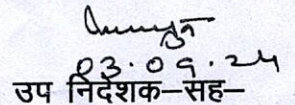 03.09.24
उप निदेशक–सह–